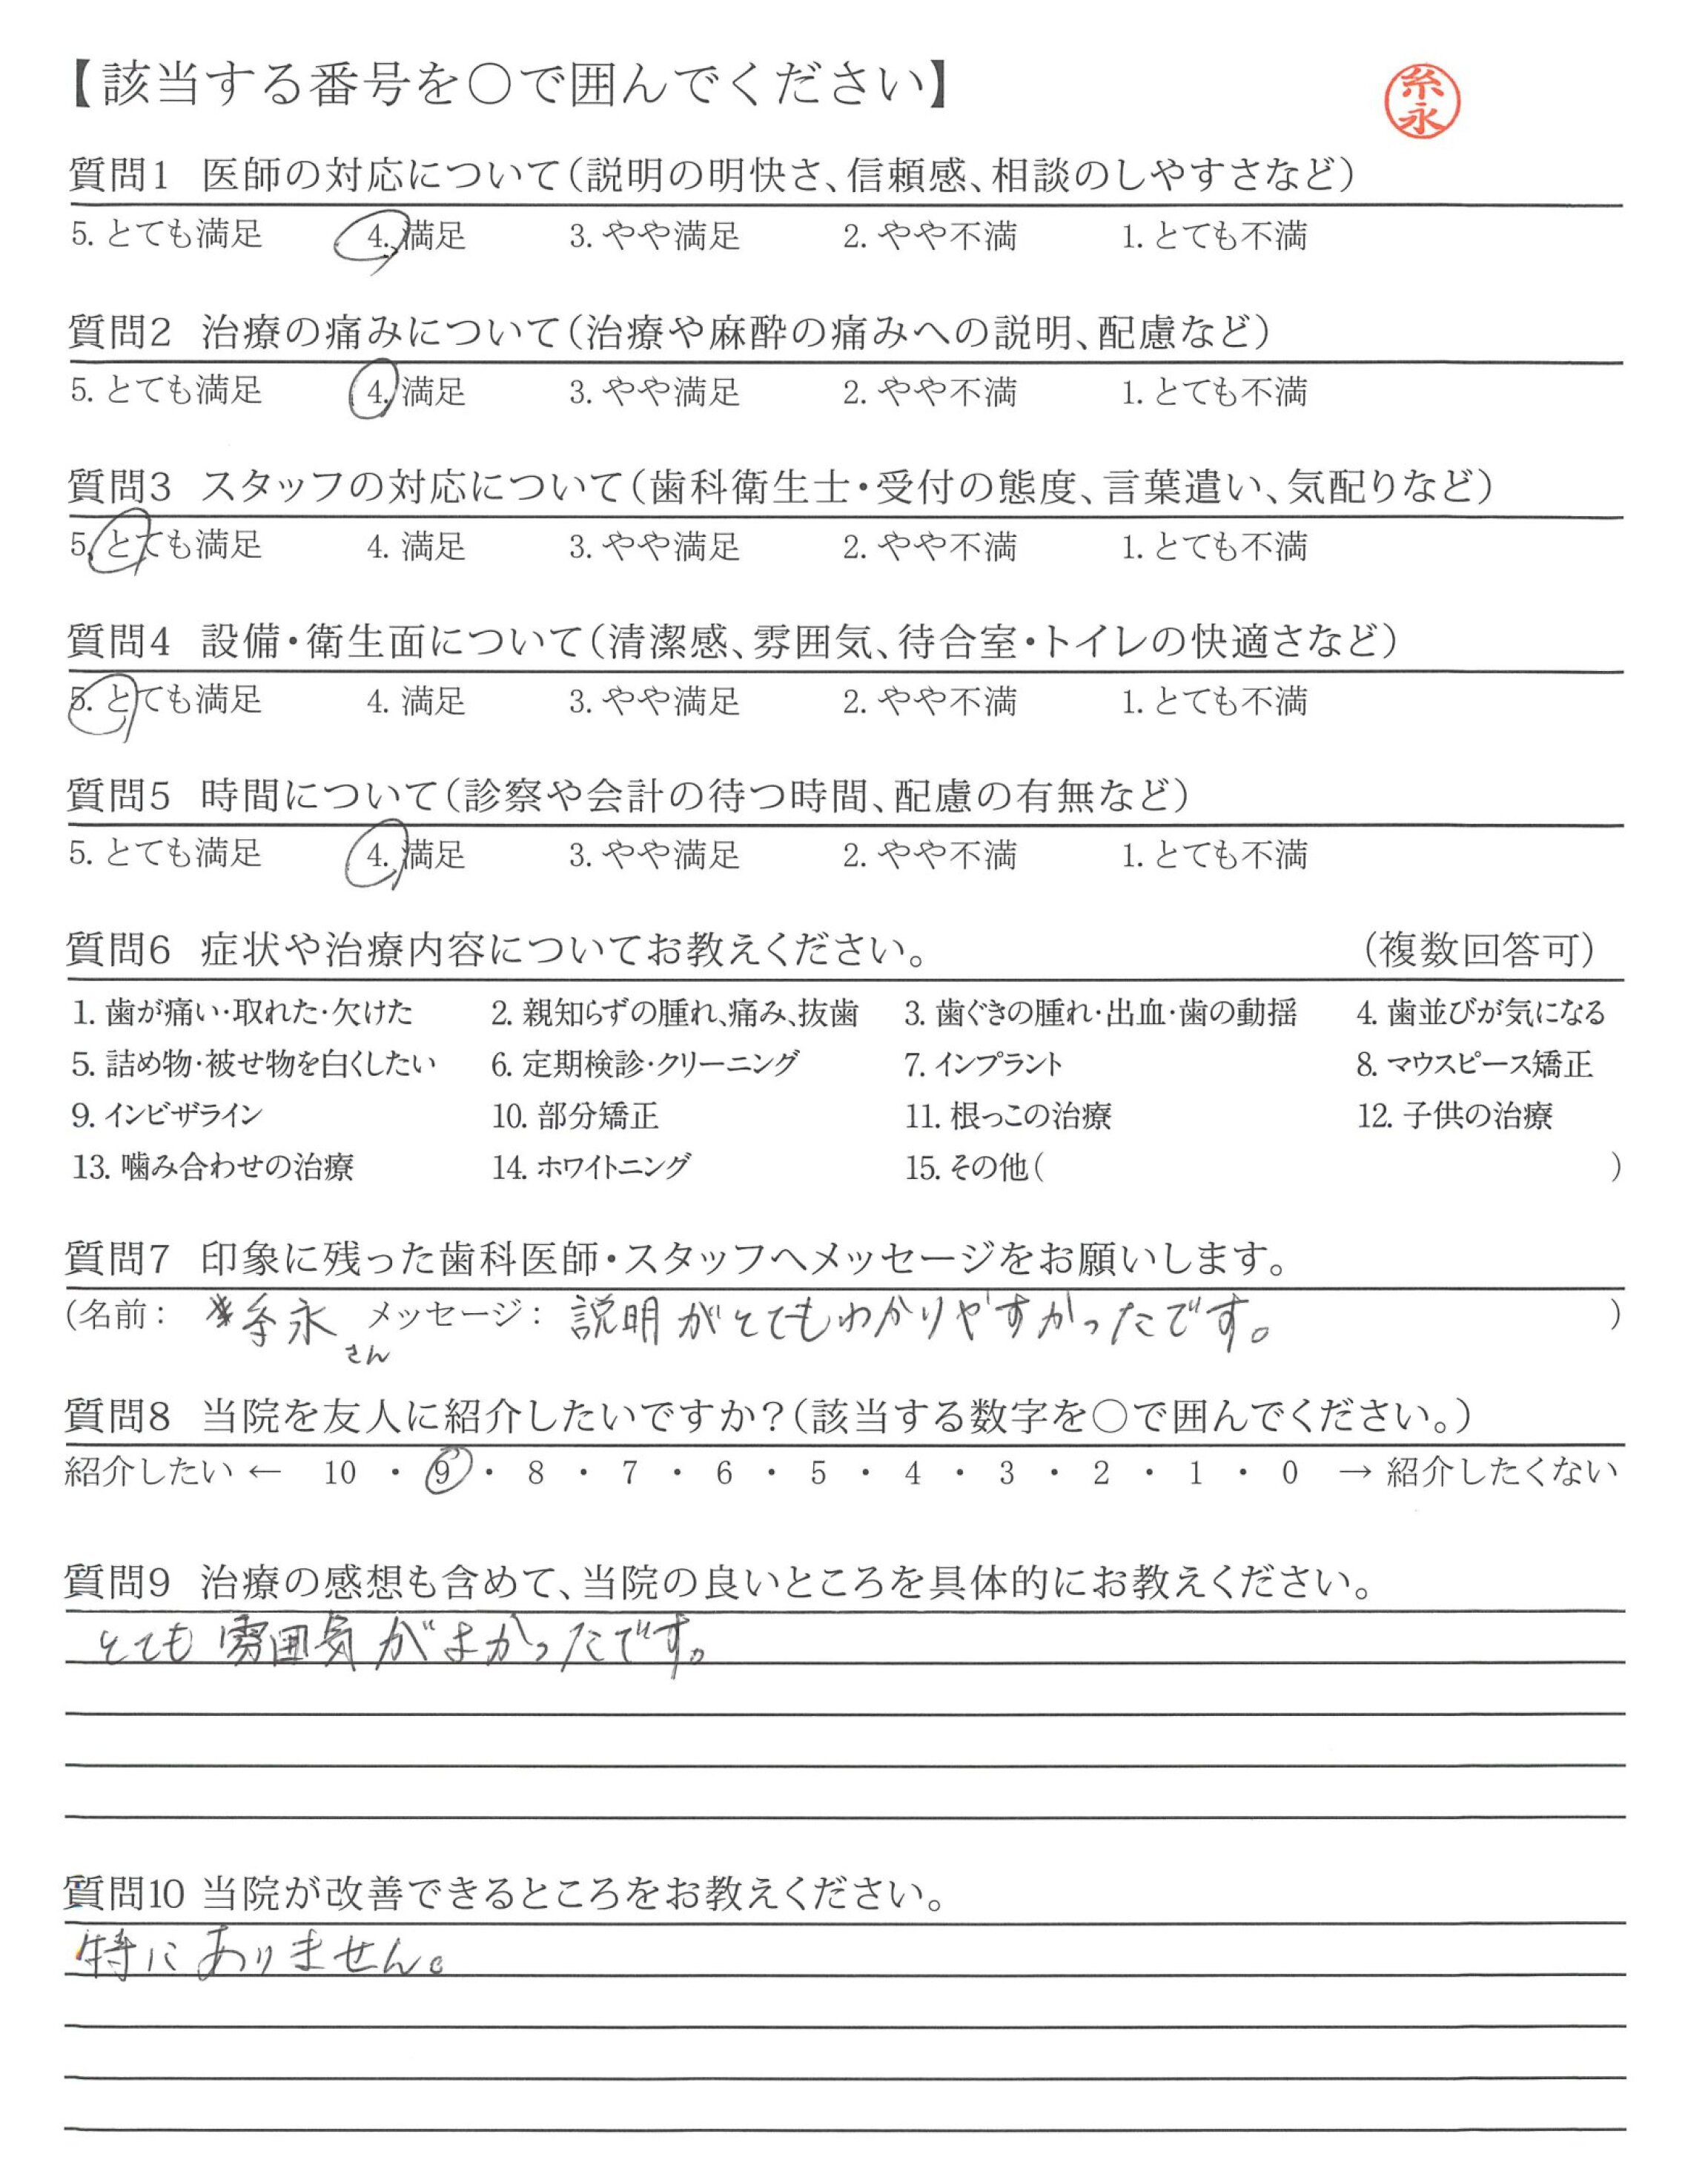 【該当する番号を○で囲んでください】
糸永
質問1 医師の対応について(説明の明快さ、信頼感、相談のしやすさなど)
5. とても満足 4. 満足 3. やや満足 2. やや不満 1. とても不満
質問2 治療の痛みについて(治療や麻酔の痛みへの説明、配慮など)
5. とても満足 4. 満足 3. やや満足 2. やや不満 1. とても不満
質問3 スタッフの対応について(歯科衛生士・受付の態度、言葉遣い、気配りなど)
5. とても満足 4. 満足 3. やや満足 2. やや不満 1. とても不満
質問4 設備・衛生面について(清潔感、雰囲気、待合室・トイレの快適さなど)
5. とても満足 4. 満足 3. やや満足 2. やや不満 1. とても不満
質問5 時間について(診察や会計の待つ時間、配慮の有無など)
5. とても満足 4. 満足 3. やや満足 2. やや不満 1. とても不満
質問6 症状や治療内容についてお教えください。 (複数回答可)
1. 歯が痛い・取れた・欠けた 2. 親知らずの腫れ、痛み、抜歯 3. 歯ぐきの腫れ・出血・歯の動揺 4. 歯並びが気になる
5. 詰め物・被せ物を白くしたい 6. 定期検診・クリーニング 7. インプラント 8. マウスピース矯正
9. インビザライン 10. 部分矯正 11. 根っこの治療 12. 子供の治療
13. 噛み合わせの治療 14. ホワイトニング 15. その他( )
質問7 印象に残った歯科医師・スタッフへメッセージをお願いします。
(名前: 糸永さん メッセージ: 説明がとてもわかりやすかったです。 )
質問8 当院を友人に紹介したいですか?(該当する数字を○で囲んでください。)
紹介したい ← 10 ・ 9 ・ 8 ・ 7 ・ 6 ・ 5 ・ 4 ・ 3 ・ 2 ・ 1 ・ 0 → 紹介したくない
質問9 治療の感想も含めて、当院の良いところを具体的にお教えください。
とても雰囲気がよかったです。
質問10 当院が改善できるところをお教えください。
特にありません。